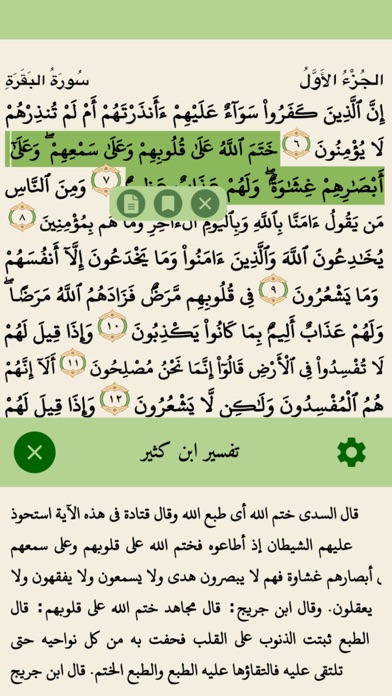 الجُزْءُ الأَوَّلُ
سُورَةُ البَقَرَةِ
إِنَّ ٱلَّذِينَ كَفَرُوا۟ سَوَآءٌ عَلَيْهِمْ ءَأَنذَرْتَهُمْ أَمْ لَمْ تُنذِرْهُمْ
لَا يُؤْمِنُونَ ٦ خَتَمَ ٱللَّهُ عَلَىٰ قُلُوبِهِمْ وَعَلَىٰ سَمْعِهِمْ ۖ وَعَلَىٰٓ
أَبْصَٰرِهِمْ غِشَٰوَةٌ ۖ وَلَهُمْ عَذَابٌ ٧ وَمِنَ ٱلنَّاسِ
مَن يَقُولُ ءَامَنَّا بِٱللَّهِ وَبِٱلْيَوْمِ ٱلْءَاخِرِ وَمَا هُم بِمُؤْمِنِينَ ٨
يُخَٰدِعُونَ ٱللَّهَ وَٱلَّذِينَ ءَامَنُوا۟ وَمَا يَخْدَعُونَ إِلَّآ أَنفُسَهُمْ
وَمَا يَشْعُرُونَ ٩ فِى قُلُوبِهِم مَّرَضٌ فَزَادَهُمُ ٱللَّهُ مَرَضًا ۖ
وَلَهُمْ عَذَابٌ أَلِيمٌۢ بِمَا كَانُوا۟ يَكْذِبُونَ ١٠ وَإِذَا قِيلَ لَهُمْ
لَا تُفْسِدُوا۟ فِى ٱلْأَرْضِ قَالُوٓا۟ إِنَّمَا نَحْنُ مُصْلِحُونَ ١١ أَلَآ إِنَّهُمْ
هُمُ ٱلْمُفْسِدُونَ وَلَٰكِن لَّا يَشْعُرُونَ ١٢ وَإِذَا قِيلَ لَهُمْ
تفسير ابن كثير
قال السدى ختم الله أى طبع الله وقال قتادة فى هذه الآية استحوذ
عليهم الشيطان إذ أطاعوه فختم الله على قلوبهم وعلى سمعهم
أبصارهم غشاوة فهم لا يبصرون هدى ولا يسمعون ولا يفقهون ولا
يعقلون. وقال ابن جريج: قال مجاهد ختم الله على قلوبهم: قال
الطبع ثبتت الذنوب على القلب فحفت به من كل نواحيه حتى
تلتقى عليه فالتقاؤها عليه الطبع والطبع الختم. قال ابن جريج